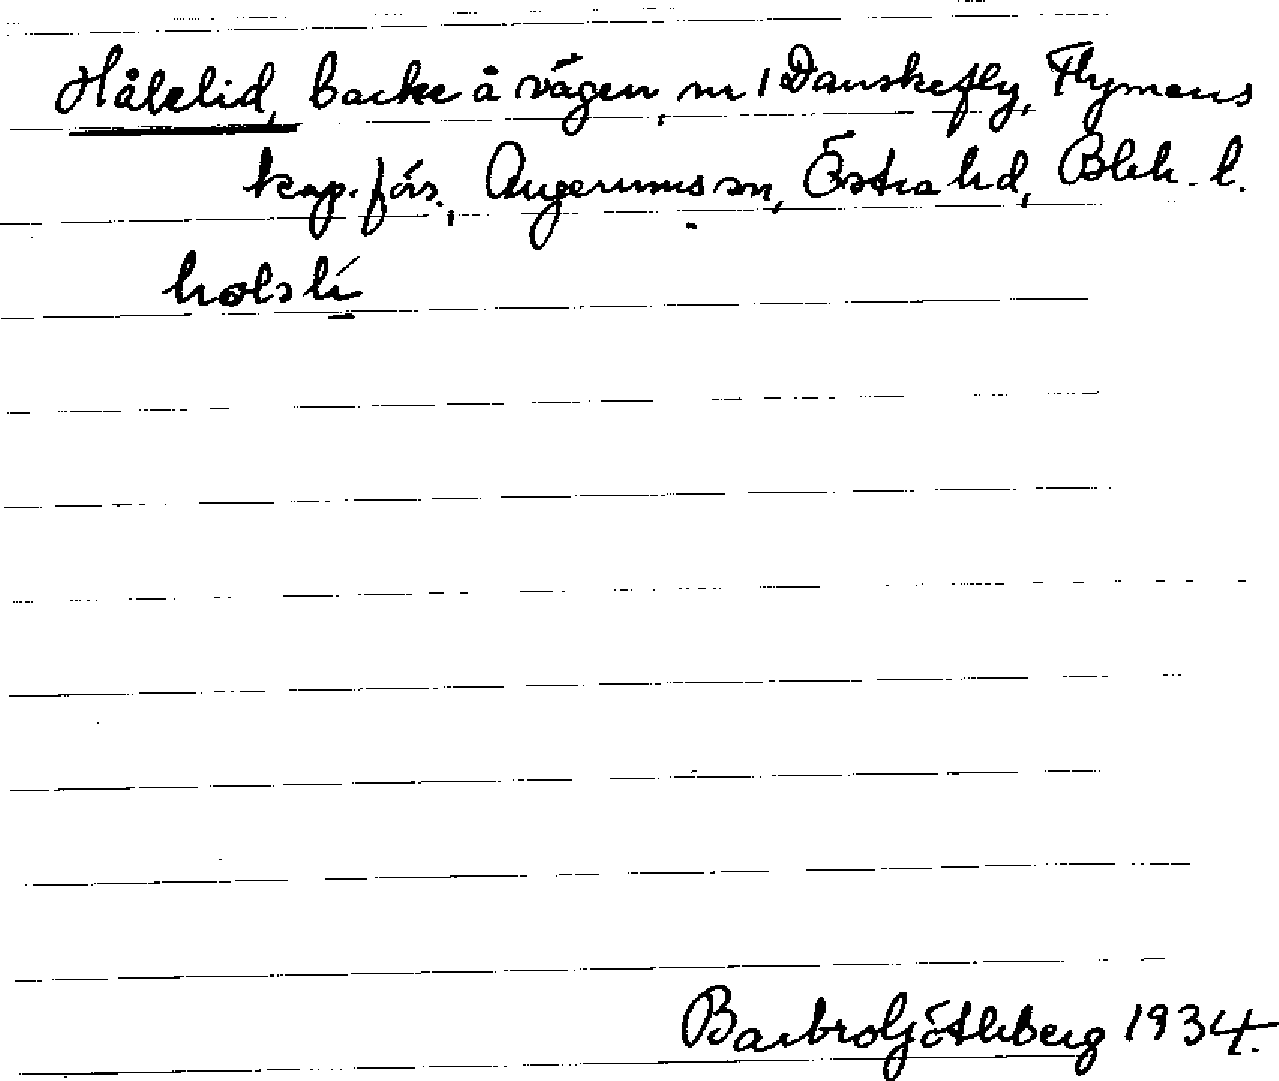 Hålslid, backe å vägen, nr 1 Danskefly, Flymens
kap. förs., Augerums sn, Östra hd, Blek. l.
holslí
Barbro Götheberg 1934.